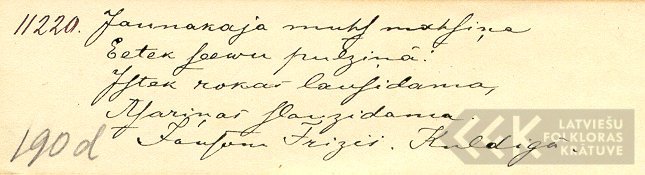 11220. Jaunakaja muhſ mahſiņa
Eetek ſeewu pulziņâ:
Iſtek rokas lauſidama,
Aſariņas ſlauzidama.
190d Janſons Frizis. Kuldigâ.
LATVIEŠU
FOLKLORAS
KRĀTUVE